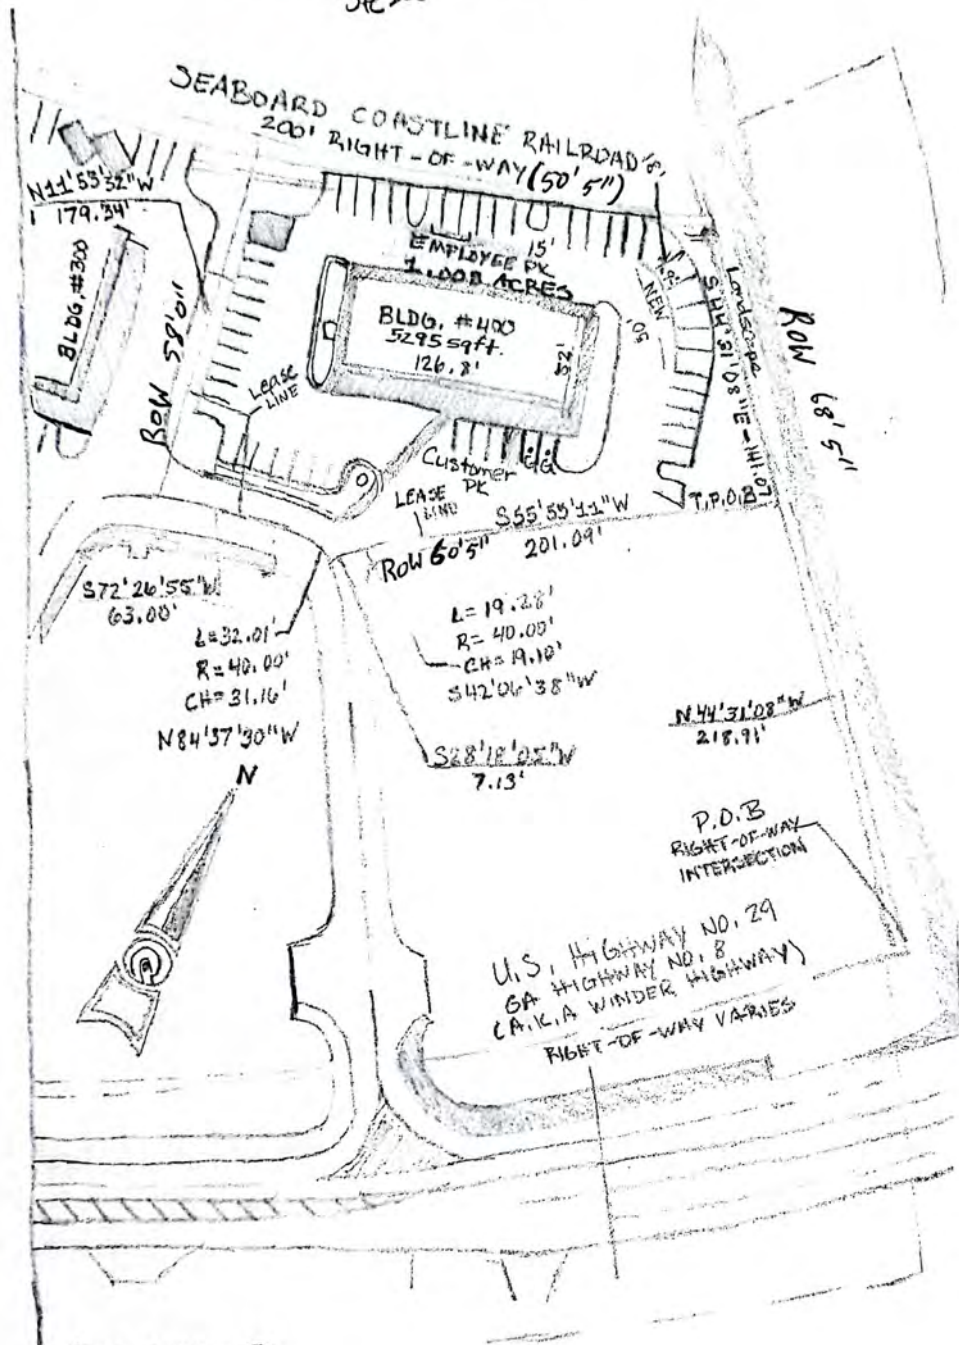 SEABOARD COASTLINE RAILROAD'S,
200' RIGHT-OF-WAY (50' 5")
N11'53'32"W
179.34'
BLDG. #300
ROW 58'0"
EMPLOYEE PK
15'
1.008 ACRES
BLDG. #400
5295 sqft.
126.8'
52'
50'
NEW
Landscape
S 44'31'08"E - 141.07
ROW 68'5"
Lease
LINE
Customer
PK
LEASE
LINE
S55'55'11"W
T.P.O.B
ROW 60'5"
201.09'
S72'26'55"W
63.00'
L=32.01'
R=40.00'
CH=31.16'
N84'37'30"W
L=19.28'
R=40.00'
CH=19.10'
S42'06'38"W
S28'18'05"W
7.13'
N 44'31'08"W
218.91'
N
P.O.B
RIGHT-OF-WAY
INTERSECTION
U.S. HIGHWAY NO. 29
GA HIGHWAY NO. 8
(A.K.A WINDER HIGHWAY)
RIGHT-OF-WAY VARIES